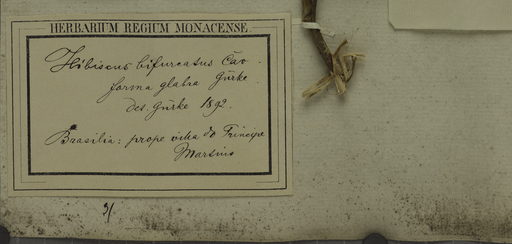 HERBARIUM REGIUM MONACENSE
Hibiscus bifurcatus Cav.
forma glabra Gürke
det. Gürke 1892.
Brasilia: prope villa do Principe
Martius